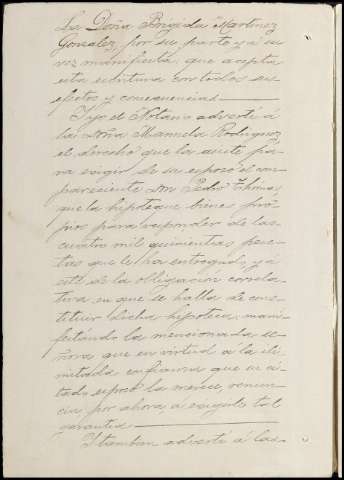 La Doña Brigida Martinez
Gonzalez, por su parte y á su
vez manifiesta, que acepta
esta escritura con todos sus
efectos y consecuencias
Y yo el Notario advertí á
la Doña Manuela Rodriguez
el derecho que la asiste pa-
ra exigir de su esposo el com-
pareciente Don Pedro
que la hipoteque bienes pro-
pios para responder de las
cuatro mil quinientas pese-
tas que le ha entregado, y á
este de la obligación correla-
tiva en que se halla de cons-
tituir dicha hipoteca, mani-
festándo la mencionada se-
ñora que en virtud á la ili-
mitada confianza que su ci-
tado esposo la merece, renun-
cia por ahora, á exigirle tal
garantia
Y tambien advertí á las